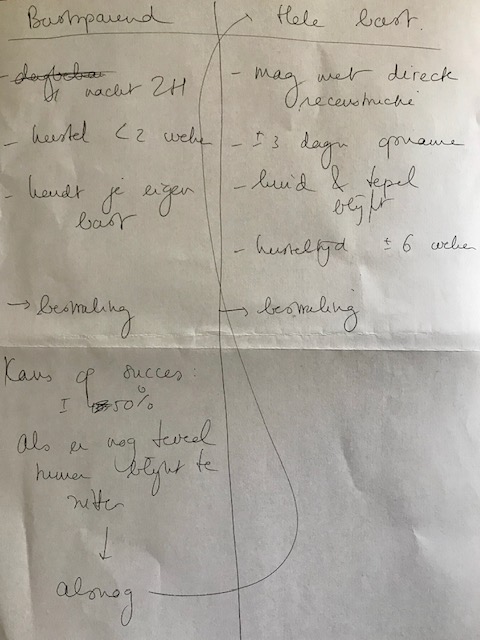 Borstsparend
- 1 nacht ZH
- herstel < 2 weken
- houdt je eigen
borst
→ bestraling
Kans op succes:
± 50%
Als er nog teveel
tumor blijft te
zitten
↓
alsnog
Hele borst.
- mag met directe
reconstructie
- ± 3 dagen opname
- huid & tepel
blijft
- hersteltijd ± 6 weken
→ bestraling